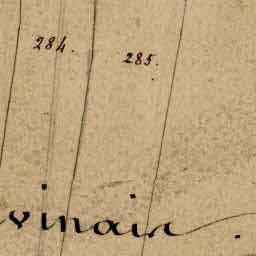 284.
285.
vinair